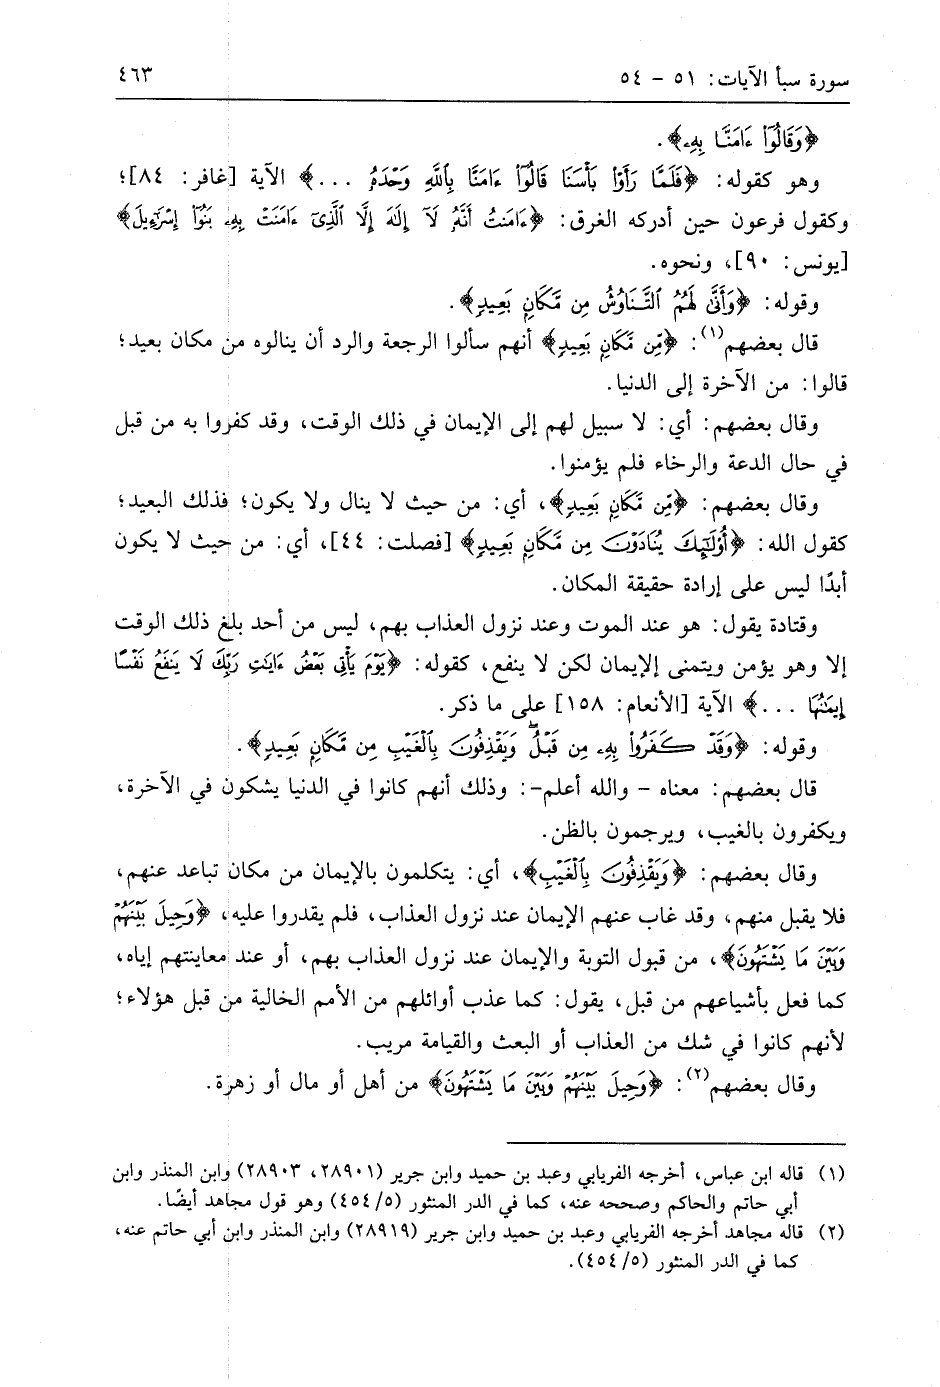 سورة سبأ الآيات: ٥١ - ٥٤ ٤٦٣
﴿وَقَالُوٓاْ ءَامَنَّا بِهِۦ﴾.
وهو كقوله: ﴿فَلَمَّا رَأَوۡاْ بَأۡسَنَا قَالُوٓاْ ءَامَنَّا بِٱللَّهِ وَحۡدَهُۥ ...﴾ الآية [غافر: ٨٤]؛
وكقول فرعون حين أدركه الغرق: ﴿ءَامَنتُ أَنَّهُۥ لَآ إِلَٰهَ إِلَّا ٱلَّذِيٓ ءَامَنَتۡ بِهِۦ بَنُوٓاْ إِسۡرَٰٓءِيلَ﴾
[يونس: ٩٠]، ونحوه.
وقوله: ﴿وَأَنَّىٰ لَهُمُ ٱلتَّنَاوُشُ مِن مَّكَانِۭ بَعِيدٖ﴾.
قال بعضهم(١): ﴿مِن مَّكَانِۭ بَعِيدٖ﴾ أنهم سألوا الرجعة والرد أن ينالوه من مكان بعيد؛
قالوا: من الآخرة إلى الدنيا.
وقال بعضهم: أي: لا سبيل لهم إلى الإيمان في ذلك الوقت، وقد كفروا به من قبل
في حال الدعة والرخاء فلم يؤمنوا.
وقال بعضهم: ﴿مِن مَّكَانِۭ بَعِيدٖ﴾، أي: من حيث لا ينال ولا يكون؛ فذلك البعيد؛
كقول الله: ﴿أُوْلَٰٓئِكَ يُنَادَوۡنَ مِن مَّكَانِۭ بَعِيدٖ﴾ [فصلت: ٤٤]، أي: من حيث لا يكون
أبدًا ليس على إرادة حقيقة المكان.
وقتادة يقول: هو عند الموت وعند نزول العذاب بهم، ليس من أحد بلغ ذلك الوقت
إلا وهو يؤمن ويتمنى الإيمان لكن لا ينفع، كقوله: ﴿يَوۡمَ يَأۡتِي بَعۡضُ ءَايَٰتِ رَبِّكَ لَا يَنفَعُ نَفۡسًا
إِيمَٰنُهَا ...﴾ الآية [الأنعام: ١٥٨] على ما ذكر.
وقوله: ﴿وَقَدۡ كَفَرُواْ بِهِۦ مِن قَبۡلُۖ وَيَقۡذِفُونَ بِٱلۡغَيۡبِ مِن مَّكَانِۭ بَعِيدٖ﴾.
قال بعضهم: معناه - والله أعلم-: وذلك أنهم كانوا في الدنيا يشكون في الآخرة،
ويكفرون بالغيب، ويرجمون بالظن.
وقال بعضهم: ﴿وَيَقۡذِفُونَ بِٱلۡغَيۡبِ﴾، أي: يتكلمون بالإيمان من مكان تباعد عنهم،
فلا يقبل منهم، وقد غاب عنهم الإيمان عند نزول العذاب، فلم يقدروا عليه، ﴿وَحِيلَ بَيۡنَهُمۡ
وَبَيۡنَ مَا يَشۡتَهُونَ﴾، من قبول التوبة والإيمان عند نزول العذاب بهم، أو عند معاينتهم إياه،
كما فعل بأشياعهم من قبل، يقول: كما عذب أوائلهم من الأمم الخالية من قبل هؤلاء؛
لأنهم كانوا في شك من العذاب أو البعث والقيامة مريب.
وقال بعضهم(٢): ﴿وَحِيلَ بَيۡنَهُمۡ وَبَيۡنَ مَا يَشۡتَهُونَ﴾ من أهل أو مال أو زهرة.
(١) قاله ابن عباس، أخرجه الفريابي وعبد بن حميد وابن جرير (٢٨٩٠١، ٢٨٩٠٣) وابن المنذر وابن
أبي حاتم والحاكم وصححه عنه، كما في الدر المنثور (٥/ ٤٥٤) وهو قول مجاهد أيضًا.
(٢) قاله مجاهد أخرجه الفريابي وعبد بن حميد وابن جرير (٢٨٩١٩) وابن المنذر وابن أبي حاتم عنه،
كما في الدر المنثور (٥/ ٤٥٤).